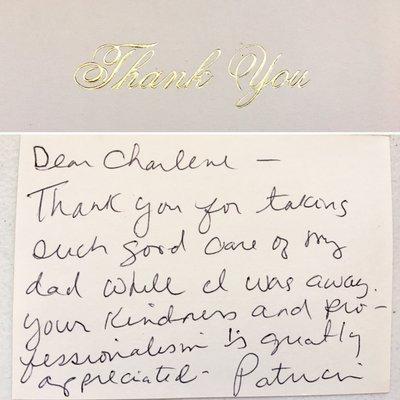 Thank You
Dear Charlene —
Thank you for taking
such good care of my
dad while I was away.
your kindness and pro-
fessionalism is greatly
appreciated - Patricia